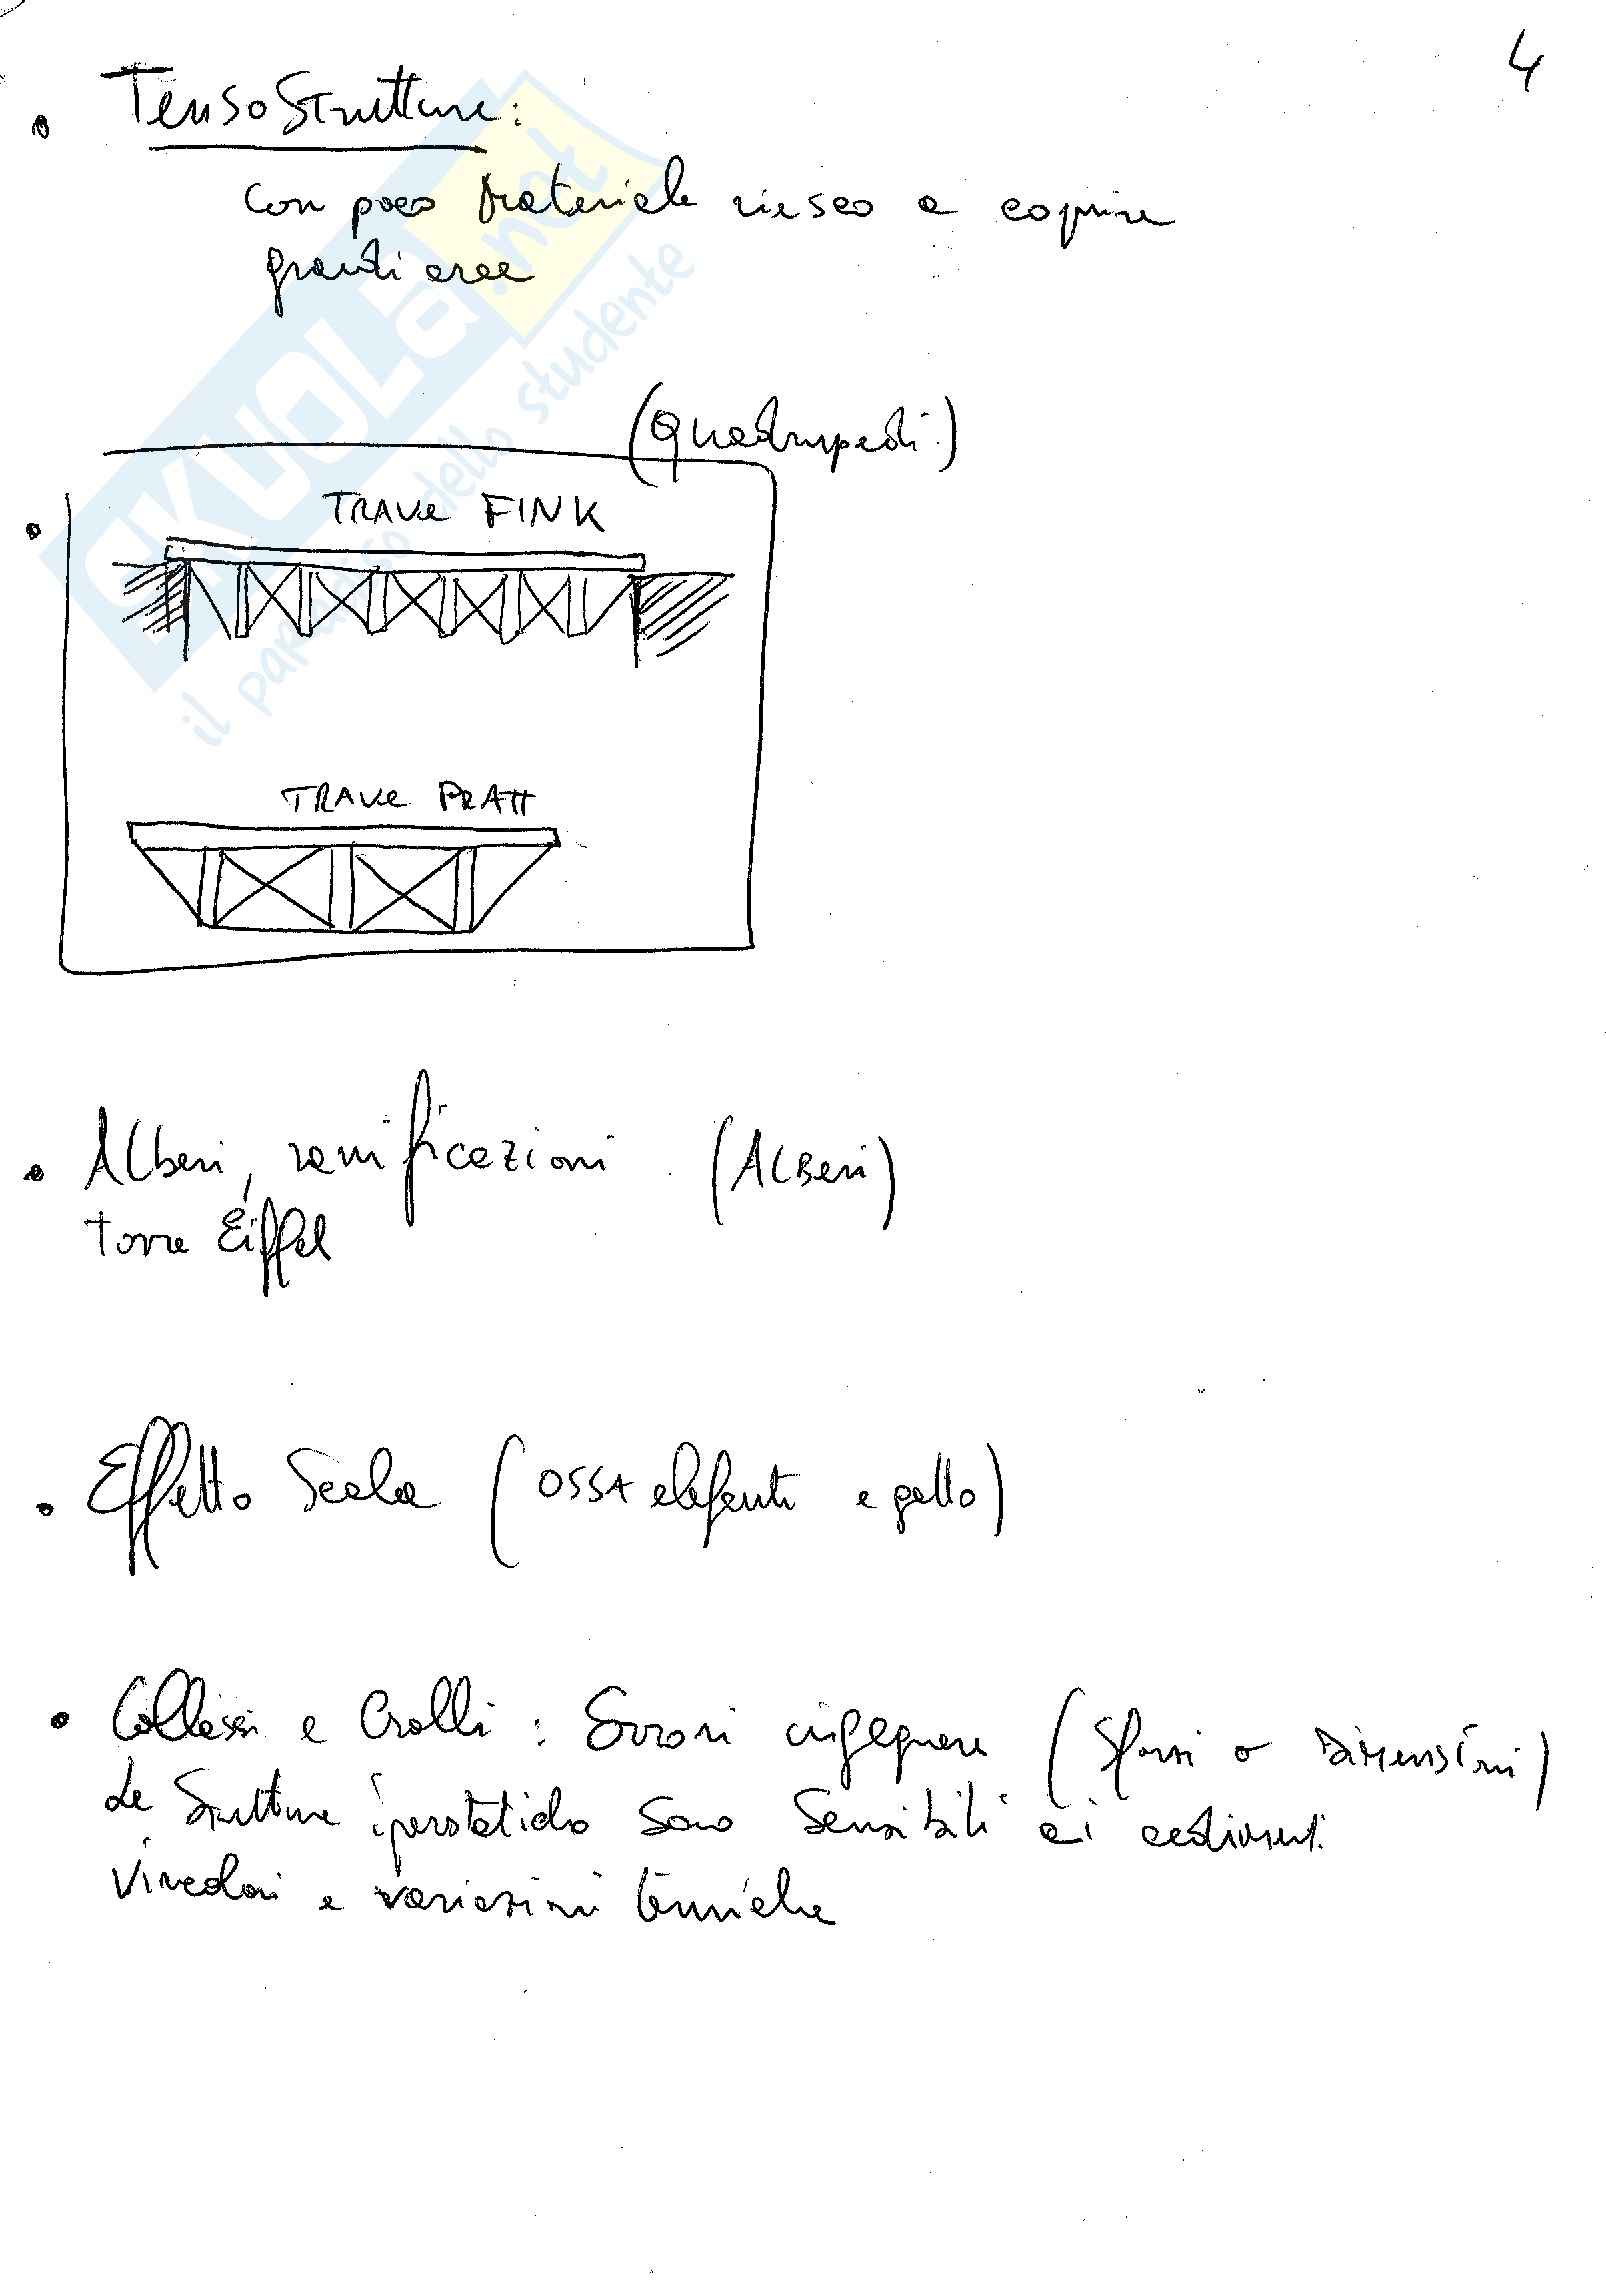 4
TensoStrutture:
Con poco Materiale riesco a coprire
grandi aree
(Quadrupedi)
TRAVe FINK
TRAVe PRATT
Alberi, ramificazioni (ALBeri)
Torre Eiffel
Effetto Scala (OSSA elefenti e gatto)
Collassi e Crolli: Errori ingegnere (Sforzi o Dimensioni)
Le Strutture iperstatiche sono Sensibili ai cedimenti
Vincolari e variazioni termiche
SKUOLA.net
il paradiso dello studente